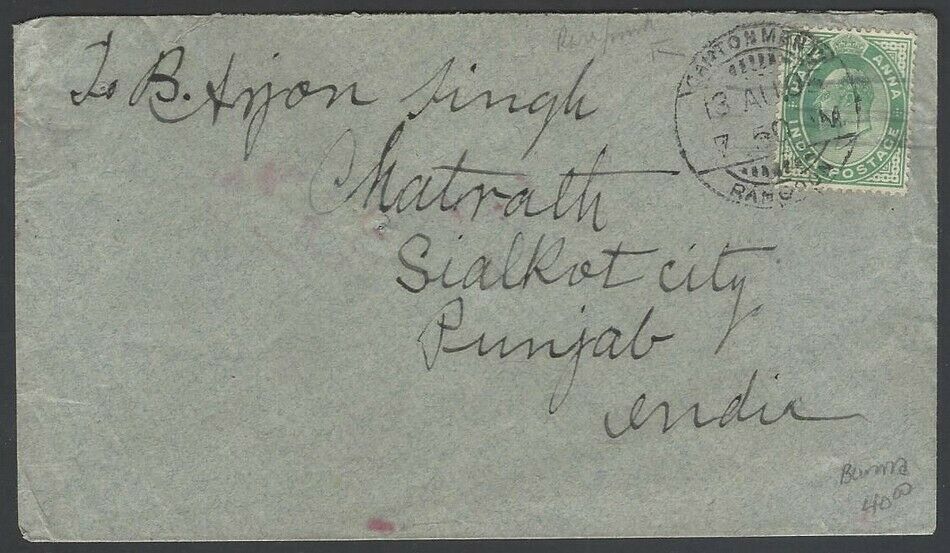 To B. Arjon Singh
Chatrath
Sialkot city
Punjab
India
CANTONMENT
13 AU
7 50 M
RANGOON
INDIA POSTAGE
ANNA
Burma
40 00